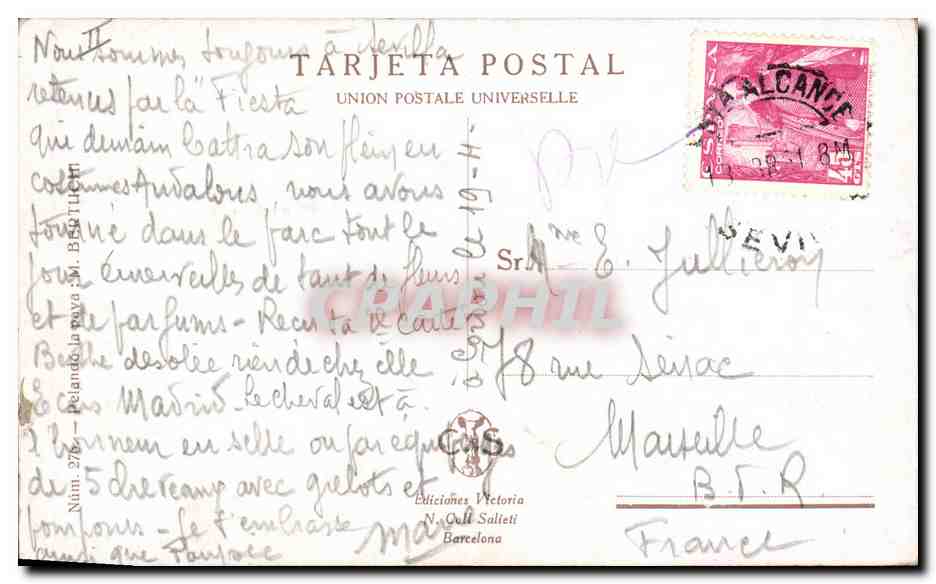 II
Nous sommes toujours à Sevilla
retenus par la "Fiesta
qui demain battra son plein en
costumes Andalous nous avons
tourné dans le parc tout le
jour émerveillés de tant de fleurs
et de parfums - Reçu ta 2e carte
Berthe désolée rien de chez elle
Ecris Madrid - Le cheval est à
l'honneur en selle ou par équipages
de 5 chevaux avec grelots et
pompons - Je t'embrasse
ainsi que
TARJETA POSTAL
UNION POSTALE UNIVERSELLE
Núm. 276 - Pelando la pava : M. BERTUCHI
le 19-4
CORREOS
45 CTS
ALCANCE
SEVI
Sr. Mme E. Jullieron
78 rue Sénac
Marseille
B.D.R.
France
CYS
Ediciones Victoria
N. Coll Salieti
Barcelona
CPAPHIL